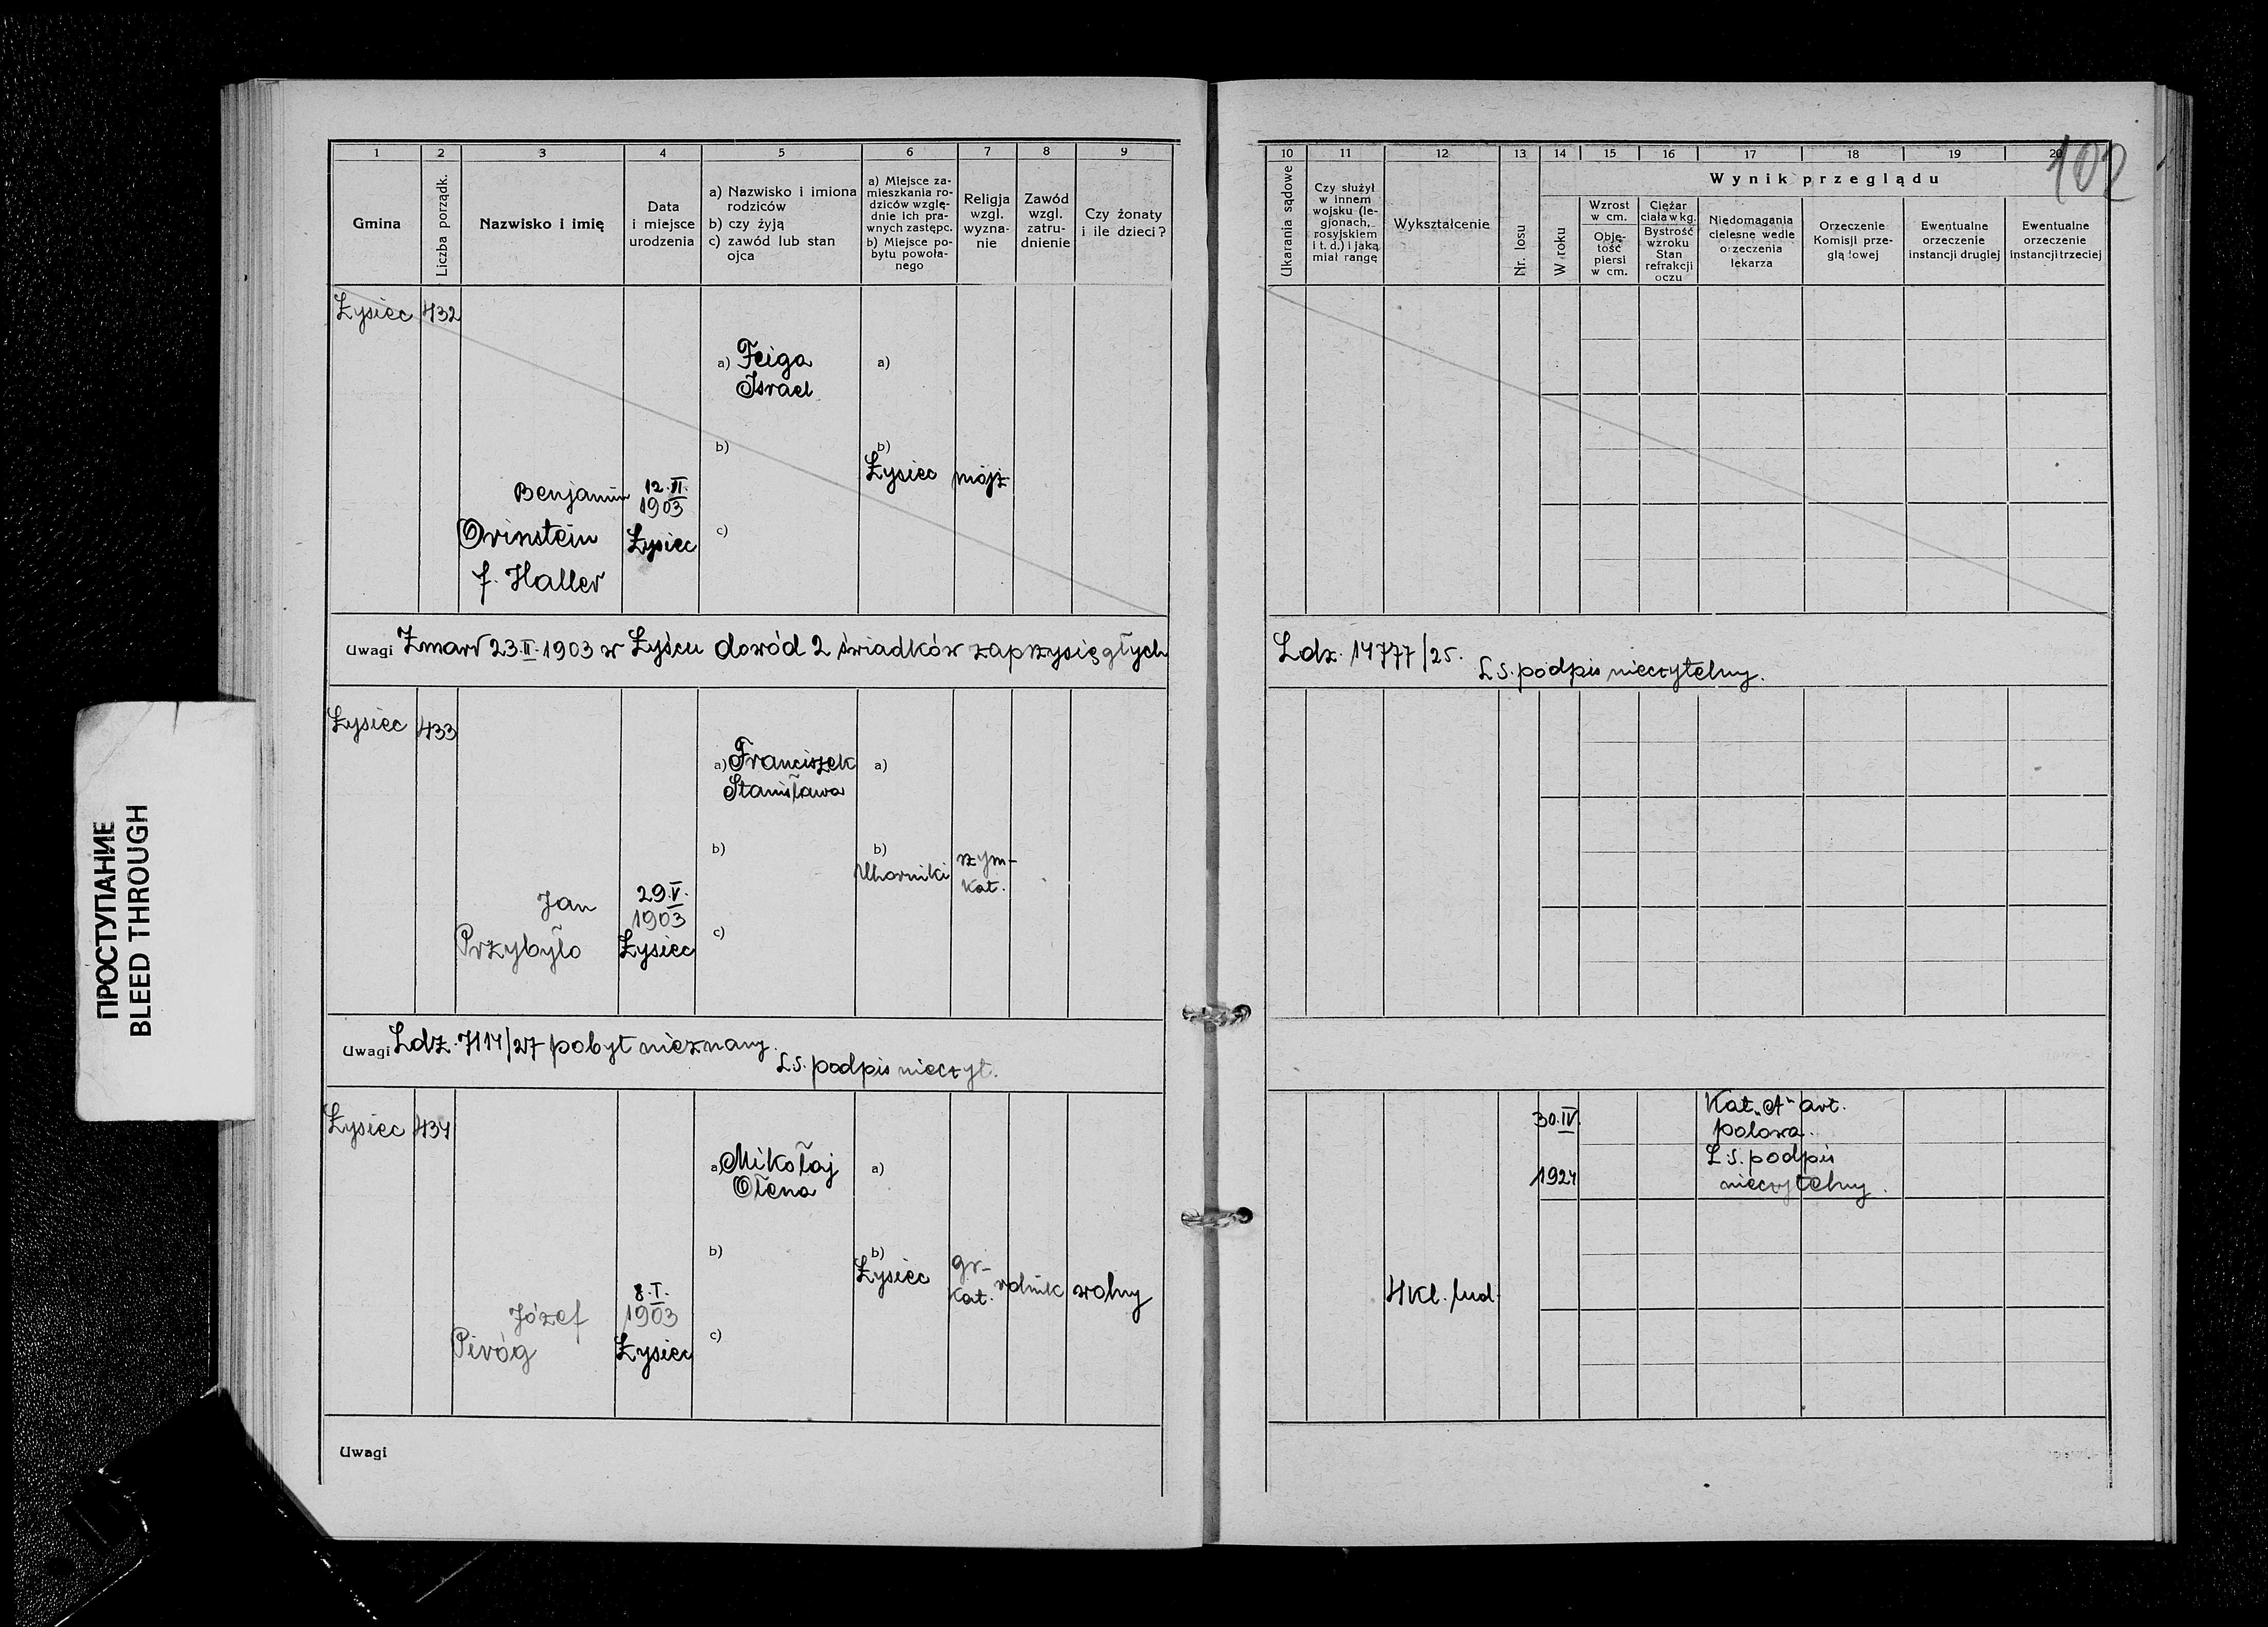 102
1 2 3 4 5 6 7 8 9
Gmina
Liczba porządk.
Nazwisko i imię
Data
i miejsce
urodzenia
a) Nazwisko i imiona
rodziców
b) czy żyją
c) zawód lub stan
ojca
a) Miejsce za-
mieszkania ro-
dziców wzglę-
dnie ich pra-
wnych zastępc.
b) Miejsce po-
bytu powoła-
nego
Religja
wzgl.
wyzna-
nie
Zawód
wzgl.
zatru-
dnienie
Czy żonaty
i ile dzieci?
10 11 12 13 14 15 16 17 18 19 20
Ukarania sądowe
Czy służył
w innem
wojsku (le-
gjonach,
rosyjskiem
i t. d.) i jaką
miał rangę
Wykształcenie
Nr. losu
Wynik przeglądu
W roku
Wzrost
w cm.
Obję-
tość
piersi
w cm.
Ciężar
ciała w kg.
Bystrość
wzroku
Stan
refrakcji
oczu
Niedomagania
cielesne wedle
orzeczenia
lekarza
Orzeczenie
Komisji prze-
glą owej
Ewentualne
orzeczenie
instancji drugiej
Ewentualne
orzeczenie
instancji trzeciej
Łysiec 432
a) Feiga
Israel
a)
b)
b)
Łysiec mojż
Benjamin
12.II.
1903
Orinstein
Łysiec
c)
f. Haller
Uwagi Zmarł 23.II.1903 w Łyścu dowód 2 świadków zaprzysięgłych
Ldz. 14777/25.
L.S. podpis nieczytelny.
Łysiec 433
a) Franciszek
Stanisława
a)
b)
b)
Uhorniki
rzym-
kat.
Jan
29.V.
1903
Przybyło
Łysiec
c)
Uwagi Ldz. 7114/27 pobyt nieznany.
L.S. podpis nieczyt.
Łysiec 434
a) Mikołaj
Ołena
a)
b)
b)
Łysiec
gr-
kat.
rolnik
wolny
Józef
8.I.
1903
Piróg
Łysiec
c)
4 kl. lud.
30.IV.
1924
Kat. „A" art.
polowa.
L.S. podpis
nieczytelny.
Uwagi
ПРОСТУПАНИЕ
BLEED THROUGH